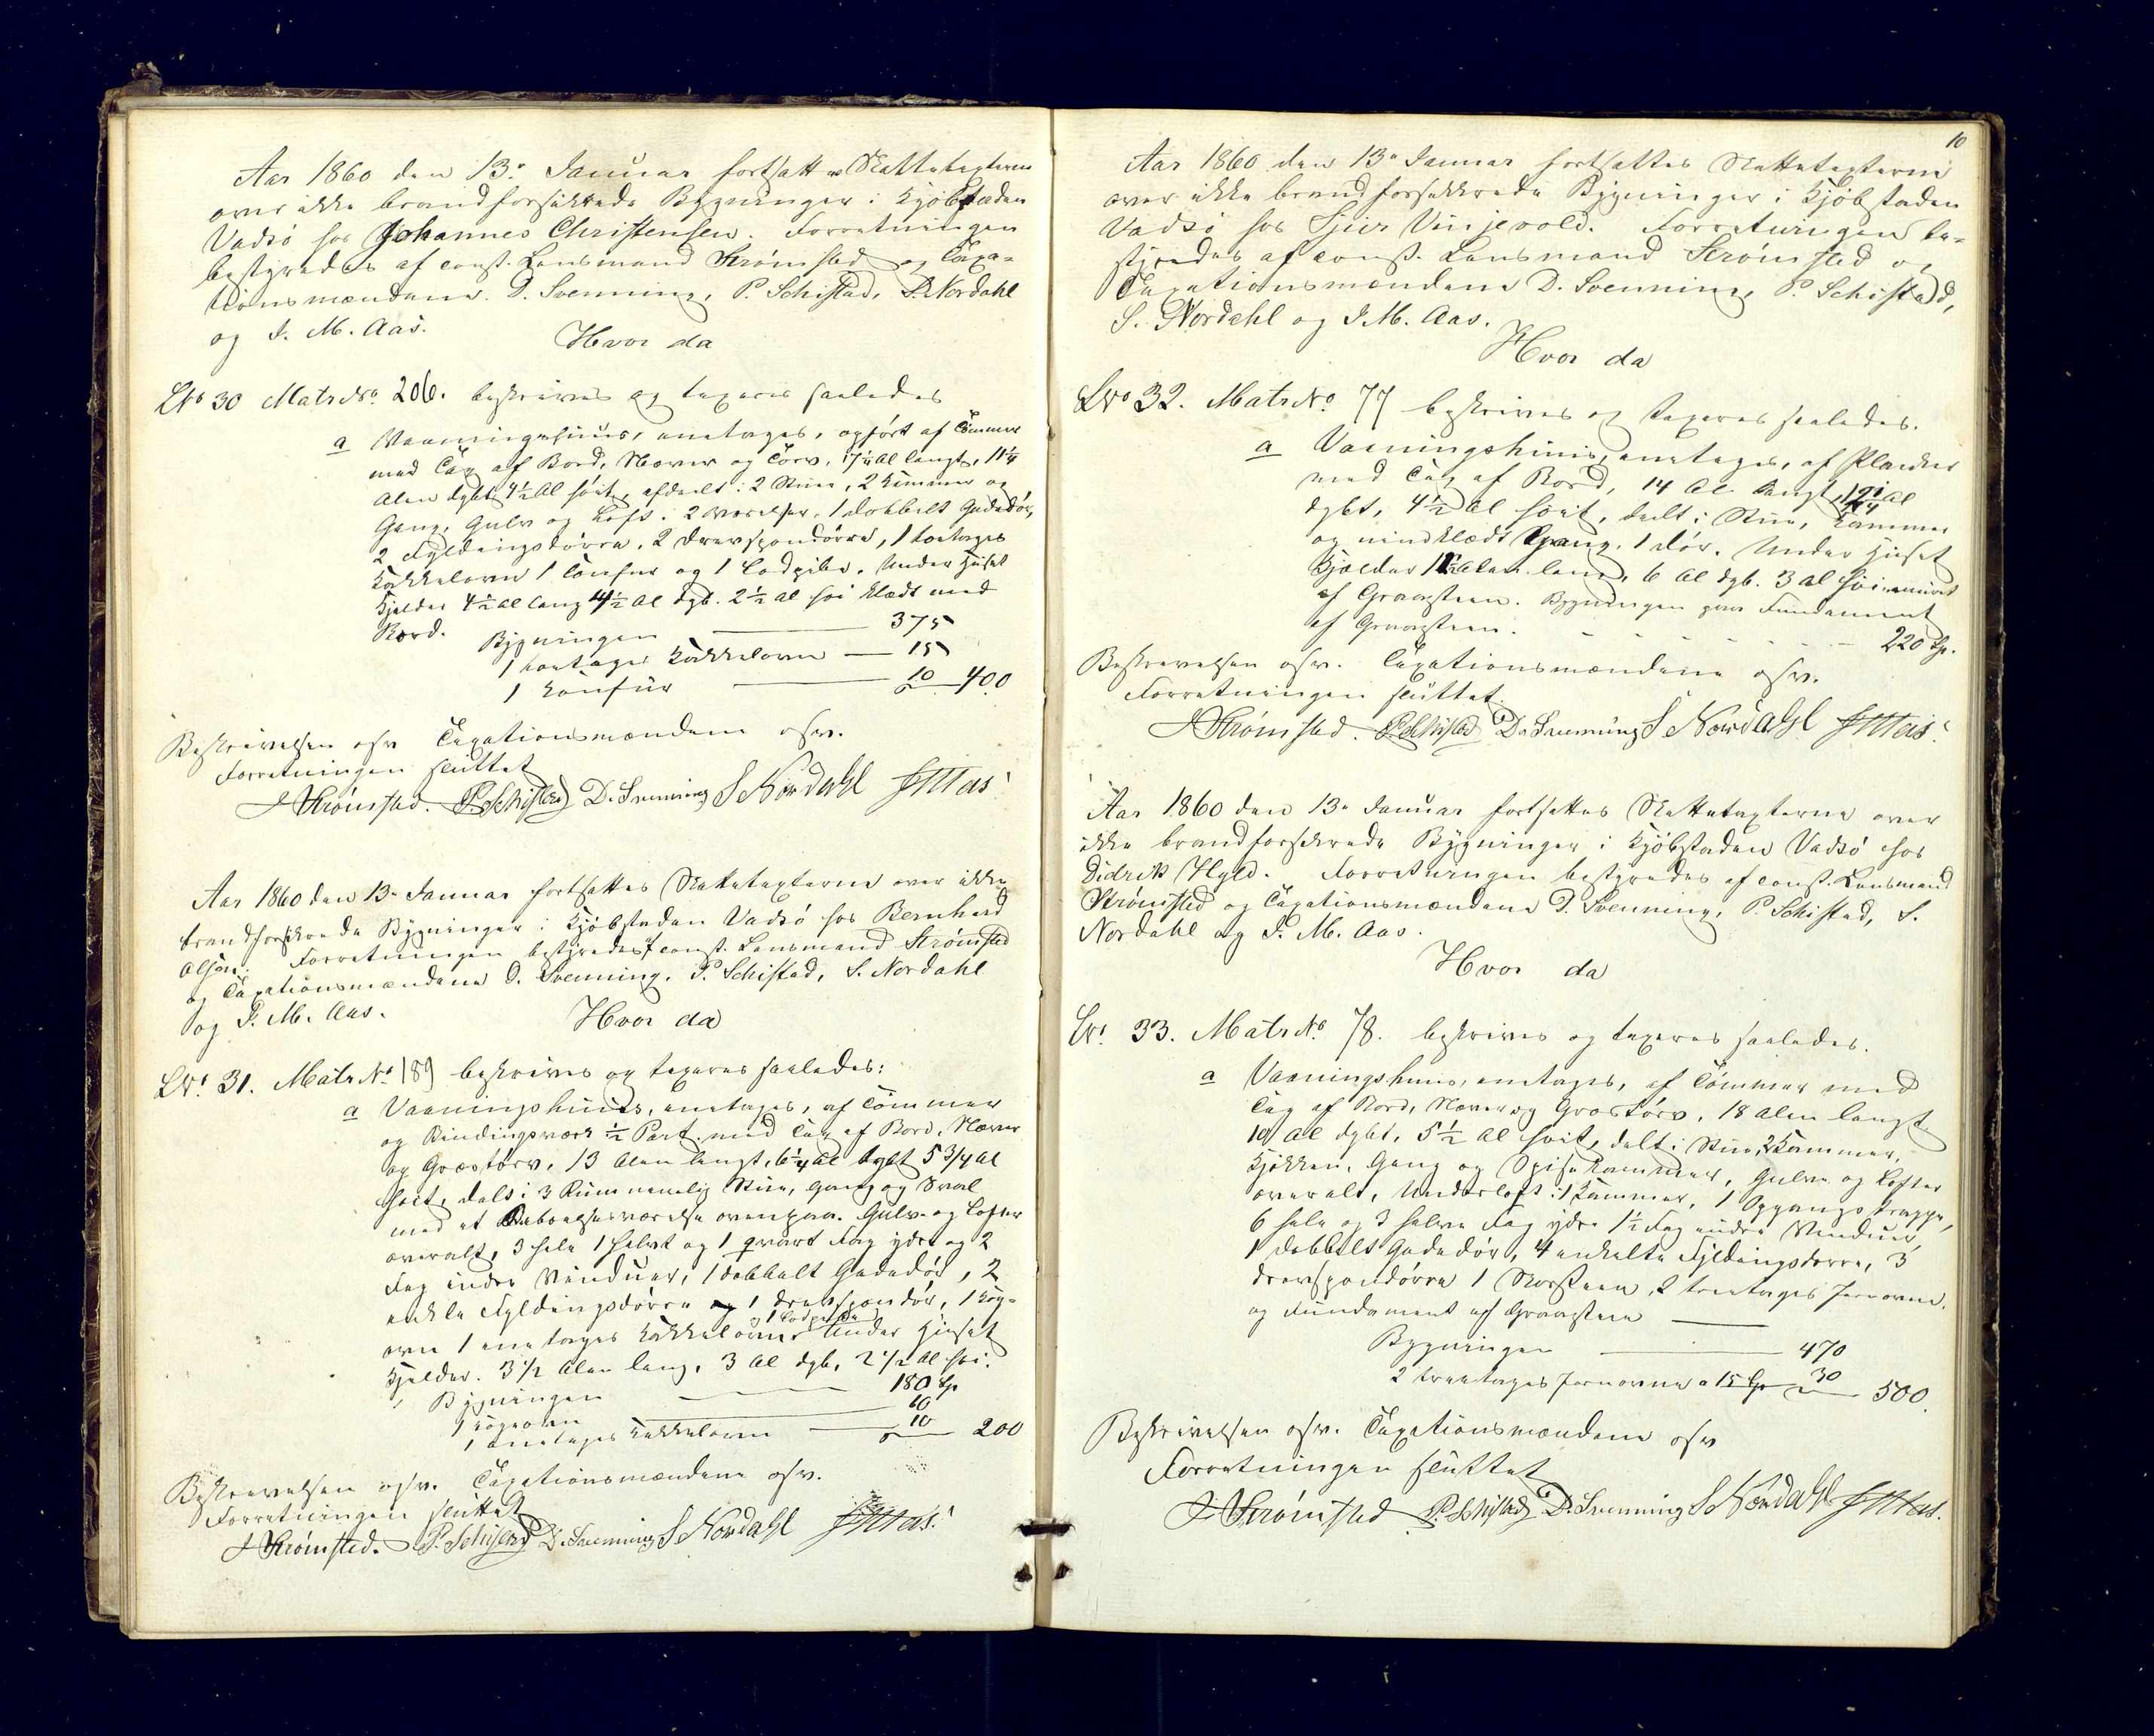 Aar 1860 den 13de Januar fortsattes Skattetaxterne
over ikke brandforsikkrede Bygninger i Kjøbstaden
Vadsø hos Johannes Christensen. Forretningen
bestyredes af const. Lensmand Strømsted og Taxa-
tionsmændene D. Svenning, P. Schistad, S. Nordahl
og I. M. Aas.
Hvor da
LNo 30 Matr No. 206. beskrives og taxeres saaledes
a Vaaningshuus, eenetages, opført af Tømmer
med Tag af Bord, Næver og Torv, 17 1/4 Al langt, 11 1/4
Alen dybt 4 1/2 Al høit, afdeelt i 2 Stuer, 2 Kammer og
Gang, Gulv og Loft i 2 Værelser, 1 dobbelt Gadedør,
2 Fyldingsdørre, 2 Drevspondørre, 1 toetages
Kakkelovn 1 Comfur og 1 Todpibe. Under Huset
Kjelder 4 1/2 Al lang 4 1/2 Al dyb. 2 1/2 Al høi klædt med
Bord.
Bygningen 375
1 toetages Kakkelovn 15
1 Comfur 10 400
Beskrivelsen osv Taxationsmændene osv.
Forretningen sluttet
J Strømsted. P. Schistad D. Svenning S Nordahl I M Aas
Aar 1860 den 13de Januar fortsattes Skattetaxterne over ikke
brandforsikrede Bygninger i Kjøbstaden Vadsø hos Bernhard
Olsen. Forretningen bestyredes af const. Lensmand Strømsted
og Taxationsmændene D. Svenning, P. Schistad, S. Nordahl
og I. M. Aas.
Hvor da
LNo. 31. Matr No 189 beskrives og taxeres saaledes:
a Vaaningshuus, eenetages, af Tømmer
og Bindingsværk 1/2 Part med Tag af Bord, Næver
og Græstørv, 13 Alen langt, 6 1/4 Al dybt 5 3/4 Al
høit, delt i 3 Rum nemlig Stue, Gang og Sval
med et Beboelsesværelse ovenpaa. Gulve og Lofter
overalt, 3 hele 1 halvt og 1 qvart Fag ydre og 2
Fag indre Vinduer, 1 dobbelt Gadedør, 2
enkle Fyldingsdørre og 1 Drevspondør, 1 Kog-
ovn 1 eenetages Kakkelovn og 1 Todpibe Under Huset
Kjelder. 3 1/2 Alen lang, 3 Al dyb, 2 1/2 Al høi.
Bygningen 180 Sp
1 Kogeovn 10
1 eenetages Kakkelovn 10 200
Beskrivelsen osv. Taxationsmændene osv.
Forretningen sluttet
J Strømsted. P. Schistad D. Svenning S Nordahl I M Aas
10
Aar 1860 den 13de Januar fortsattes Skattetaxterne
over ikke brandforsikkrede Bygninger i Kjøbstaden
Vadsø hos Sjur Vinjevold. Forretningen be-
styredes af const. Lensmand Strømsted og
Taxationsmændene D. Svenning, P. Schistad,
S. Nordahl og I M. Aas.
Hvor da
LNo 32. Matr No. 77 beskrives og taxeres saaledes.
a Vaaningshuus, eenetages, af Planker
med Tag af Bord, 14 Al. langt, Al
dybt, 4 1/2 Al høit, deelt i Stue, Kammer
og uindklædt Gang. 1 Dør. Under Huset
Kjælder Alen lang, 6 Al dyb. 3 Al høi muret
af Graasteen. Bygningen paa Fundament
af Graasteen. 220 Sp.
Beskrivelsen osv. Taxationsmændene osv.
Forretningen sluttet.
J Strømsted. P. Schistad D. Svenning S Nordahl I M Aas.
Aar 1860 den 13de Januar fortsattes Skattetaxterne over
ikke brandforsikrede Bygninger i Kjøbstaden Vadsø hos
Didrik Hyld. Forretningen bestyredes af const. Lensmand
Strømsted og Taxationsmændene D. Svenning, P. Schistad, S.
Nordahl og I. M. Aas.
Hvor da
LNo. 33. Matr No. 78. beskrives og taxeres saaledes.
a Vaaningshuus, eenetages, af Tømmer med
Tag af Bord, Næver og Græstørv, 18 Alen langt
10 Al dybt, 5 1/2 Al høit, delt i Stue, 2 Kammer,
Kjøkken, Gang og Spisekammer, Gulve og Lofter
overalt, Underloft i 1 Kammer, 1 Opgangstrappe,
6 hele og 3 halve Fag ydre 1 1/2 Fag indre Vinduer,
1 dobbelt Gadedør, 4 enkelte Fyldingsdørre, 3
Drevspondørre 1 Skorsteen, 2 treetages Jernovne,
og Fundament af Graasteen
Bygningen 470
2 treetages Jernovne a 15 Sp 30 500.
Beskrivelsen osv. Taxationsmændene osv
Forretningen sluttet
J Strømsted P. Schistad D. Svenning S Nordahl I M Aas.